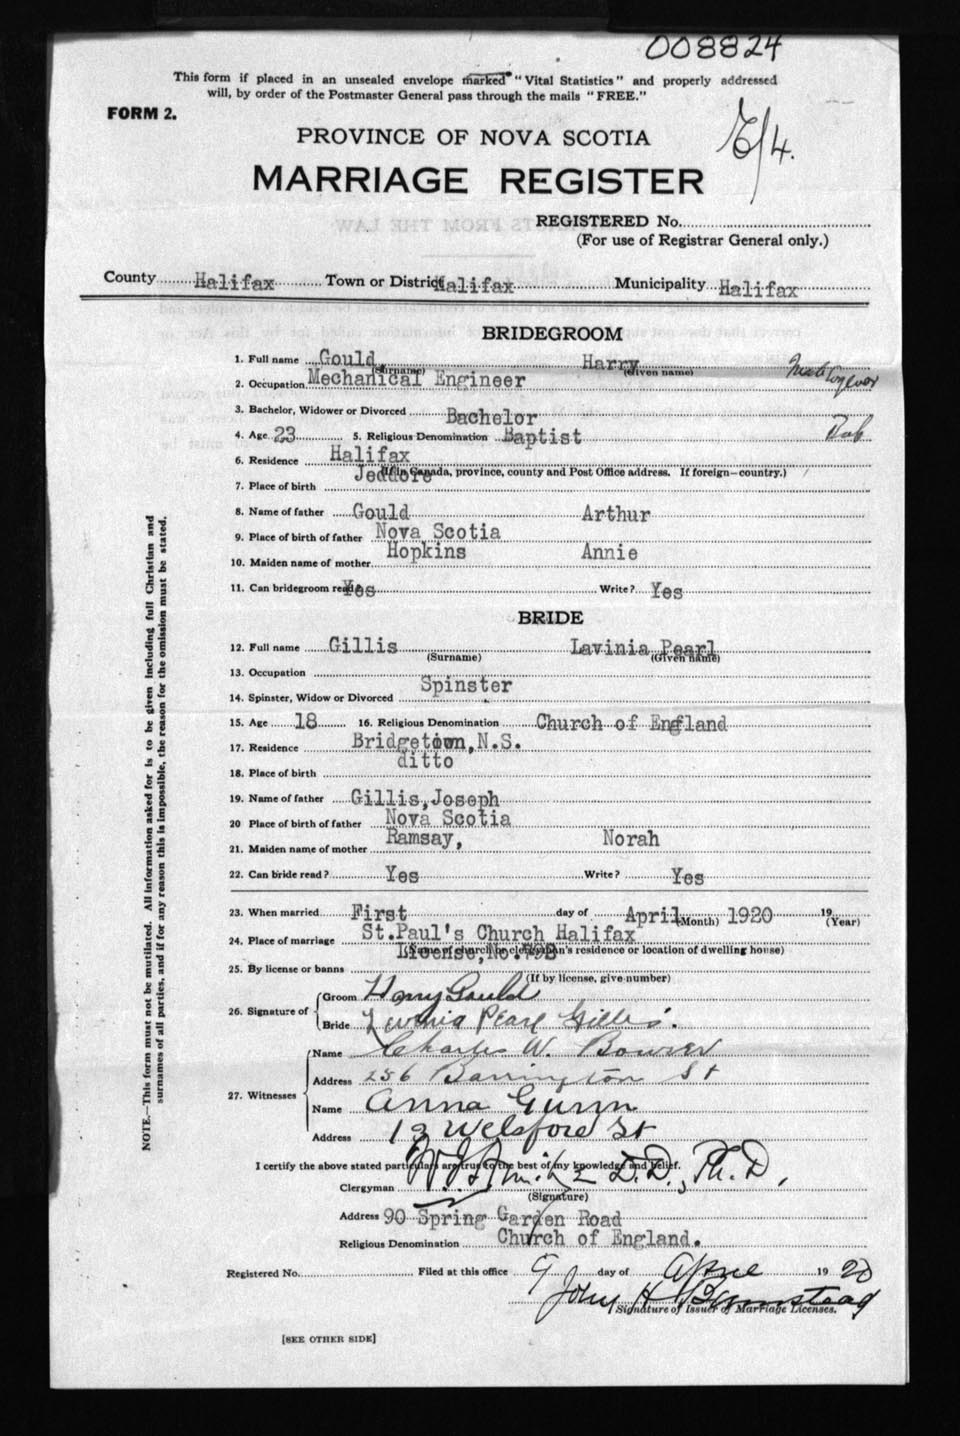 008824
This form if placed in an unsealed envelope marked "Vital Statistics" and properly addressed
will, by order of the Postmaster General pass through the mails "FREE."
FORM 2.
PROVINCE OF NOVA SCOTIA
MARRIAGE REGISTER
REGISTERED No.
(For use of Registrar General only.)
County Halifax Town or District Halifax Municipality Halifax
BRIDEGROOM
1. Full name Gould, Harry
(Surname) (Given name)
2. Occupation Mechanical Engineer
3. Bachelor, Widower or Divorced Bachelor
4. Age 23 5. Religious Denomination Baptist
6. Residence Halifax
(If in Canada, province, county and Post Office address. If foreign—country.)
7. Place of birth Jeddore
8. Name of father Gould Arthur
9. Place of birth of father Nova Scotia
10. Maiden name of mother Hopkins Annie
11. Can bridegroom read? Yes Write? Yes
BRIDE
12. Full name Gillis Lavinia Pearl
(Surname) (Given name)
13. Occupation
14. Spinster, Widow or Divorced Spinster
15. Age 18 16. Religious Denomination Church of England
17. Residence Bridgetown, N.S.
18. Place of birth ditto
19. Name of father Gillis, Joseph
20 Place of birth of father Nova Scotia
21. Maiden name of mother Ramsay, Norah
22. Can bride read? Yes Write? Yes
23. When married First day of April 1920 19
(Month) (Year)
24. Place of marriage St. Paul's Church Halifax
(Name of church or clergyman's residence or location of dwelling house)
25. By license or banns License, No.
(If by license, give number)
26. Signature of Groom Harry Gould
Bride Lavinia Pearl Gillis.
27. Witnesses Name Charles W. Bowser
Address 256 Barrington St
Name Anna Gunn
Address 13 Welsford St
I certify the above stated particulars are true to the best of my knowledge and belief.
Clergyman D.D., Ph.D,
(Signature)
Address 90 Spring Garden Road
Religious Denomination Church of England.
Registered No. Filed at this office 9 day of April 19 20
John H
Signature of Issuer of Marriage Licenses.
[SEE OTHER SIDE]
NOTE.—This form must not be mutilated. All information asked for is to be given including full Christian and
surnames of all parties, and if for any reason this is impossible, the reason for the omission must be stated.